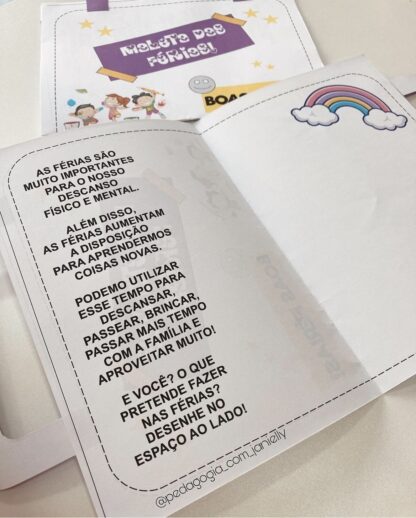 MALETA DAS
FÉRIAS!
BOAS
AS FÉRIAS SÃO
MUITO IMPORTANTES
PARA O NOSSO
DESCANSO
FÍSICO E MENTAL.
ALÉM DISSO,
AS FÉRIAS AUMENTAM
A DISPOSIÇÃO
PARA APRENDERMOS
COISAS NOVAS.
PODEMO UTILIZAR
ESSE TEMPO PARA
DESCANSAR,
PASSEAR, BRINCAR,
PASSAR MAIS TEMPO
COM A FAMÍLIA E
APROVEITAR MUITO!
E VOCÊ? O QUE
PRETENDE FAZER
NAS FÉRIAS?
DESENHE NO
ESPAÇO AO LADO!
@pedagogia_com_janielly